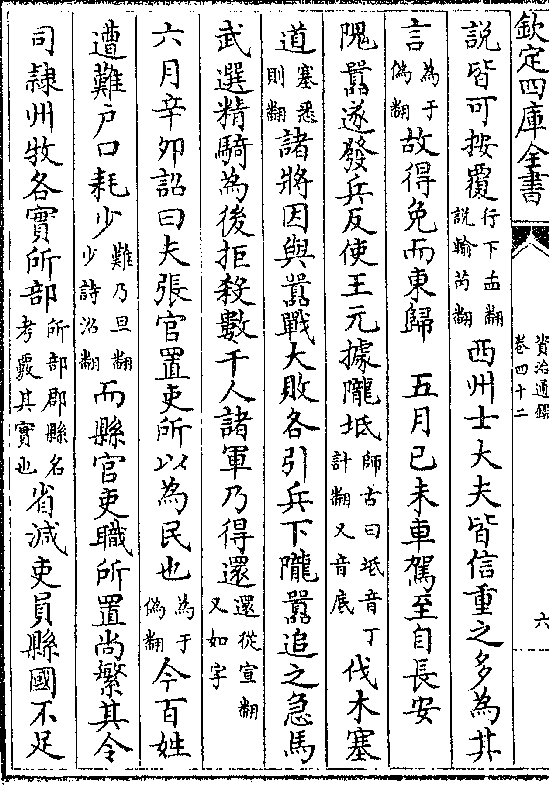 欽定四庫全書
資治通鑑
卷四十二
六
說皆可按覆行下孟翻說輸芮翻西州士大夫皆信重之多為其
言為于偽翻故得免而東歸 五月己未車駕至自長安
隗囂遂發兵反使王元據隴坻師古曰坻音丁計翻又音底伐木塞
道塞悉則翻諸將因與囂戰大敗各引兵下隴囂追之急馬
武選精騎為後拒殺數千人諸軍乃得還還從宣翻又如字
六月辛卯詔曰夫張官置吏所以為民也為于偽翻今百姓
遭難戶口耗少難乃旦翻少詩沼翻而縣官吏職所置尚繁其令
司隸州牧各實所部所部郡縣各考覈其實也省減吏員縣國不足